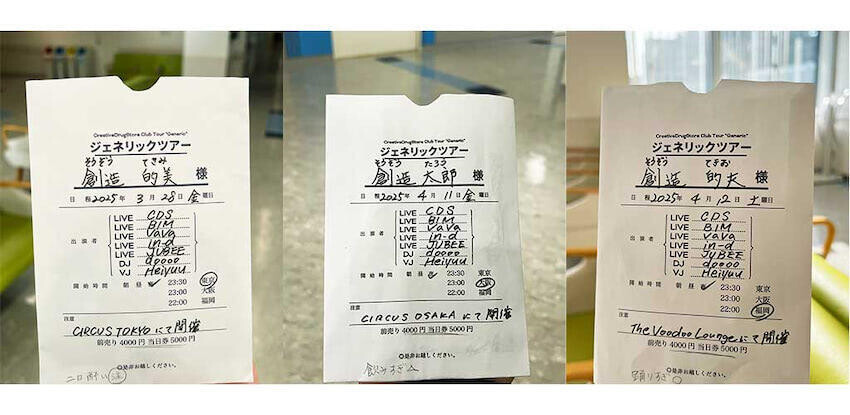 CreativeDrugStore Club Tour "Generic"
ジェネリックツアー
そうぞう てきみ
創造 的美 様
日 程 2025年 3月 28日 金曜日
出演者
LIVE CDS
LIVE BIM
LIVE VaVa
LIVE in-d
LIVE JUBEE
DJ doooo
VJ Heiyuu
開始時間 朝 昼 ✓ 23:30 東京
23:00 大阪
22:00 福岡
注意
CIRCUS TOKYO にて開催
前売り 4000円 当日券 5000円
◎是非お越しください。
二日酔い 注
CreativeDrugStore Club Tour "Generic"
ジェネリックツアー
そうぞう たろう
創造 太郎 様
日 程 2025年 4月 11日 金曜日
出演者
LIVE CDS
LIVE BIM
LIVE VaVa
LIVE in-d
LIVE JUBEE
DJ doooo
VJ Heiyuu
開始時間 朝 昼 ✓ 23:30 東京
23:00 大阪
22:00 福岡
注意
CIRCUS OSAKA にて開催
前売り 4000円 当日券 5000円
◎是非お越しください。
飲みすぎ △
CreativeDrugStore Club Tour "Generic"
ジェネリックツアー
そうぞう てきお
創造 的夫 様
日 程 2025年 4月 12日 土曜日
出演者
LIVE CDS
LIVE BIM
LIVE VaVa
LIVE in-d
LIVE JUBEE
DJ doooo
VJ Heiyuu
開始時間 朝 昼 ✓ 23:30 東京
23:00 大阪
22:00 福岡
注意
The Voodoo Lounge にて開催
前売り 4000円 当日券 5000円
◎是非お越しください。
踊りすぎ ○